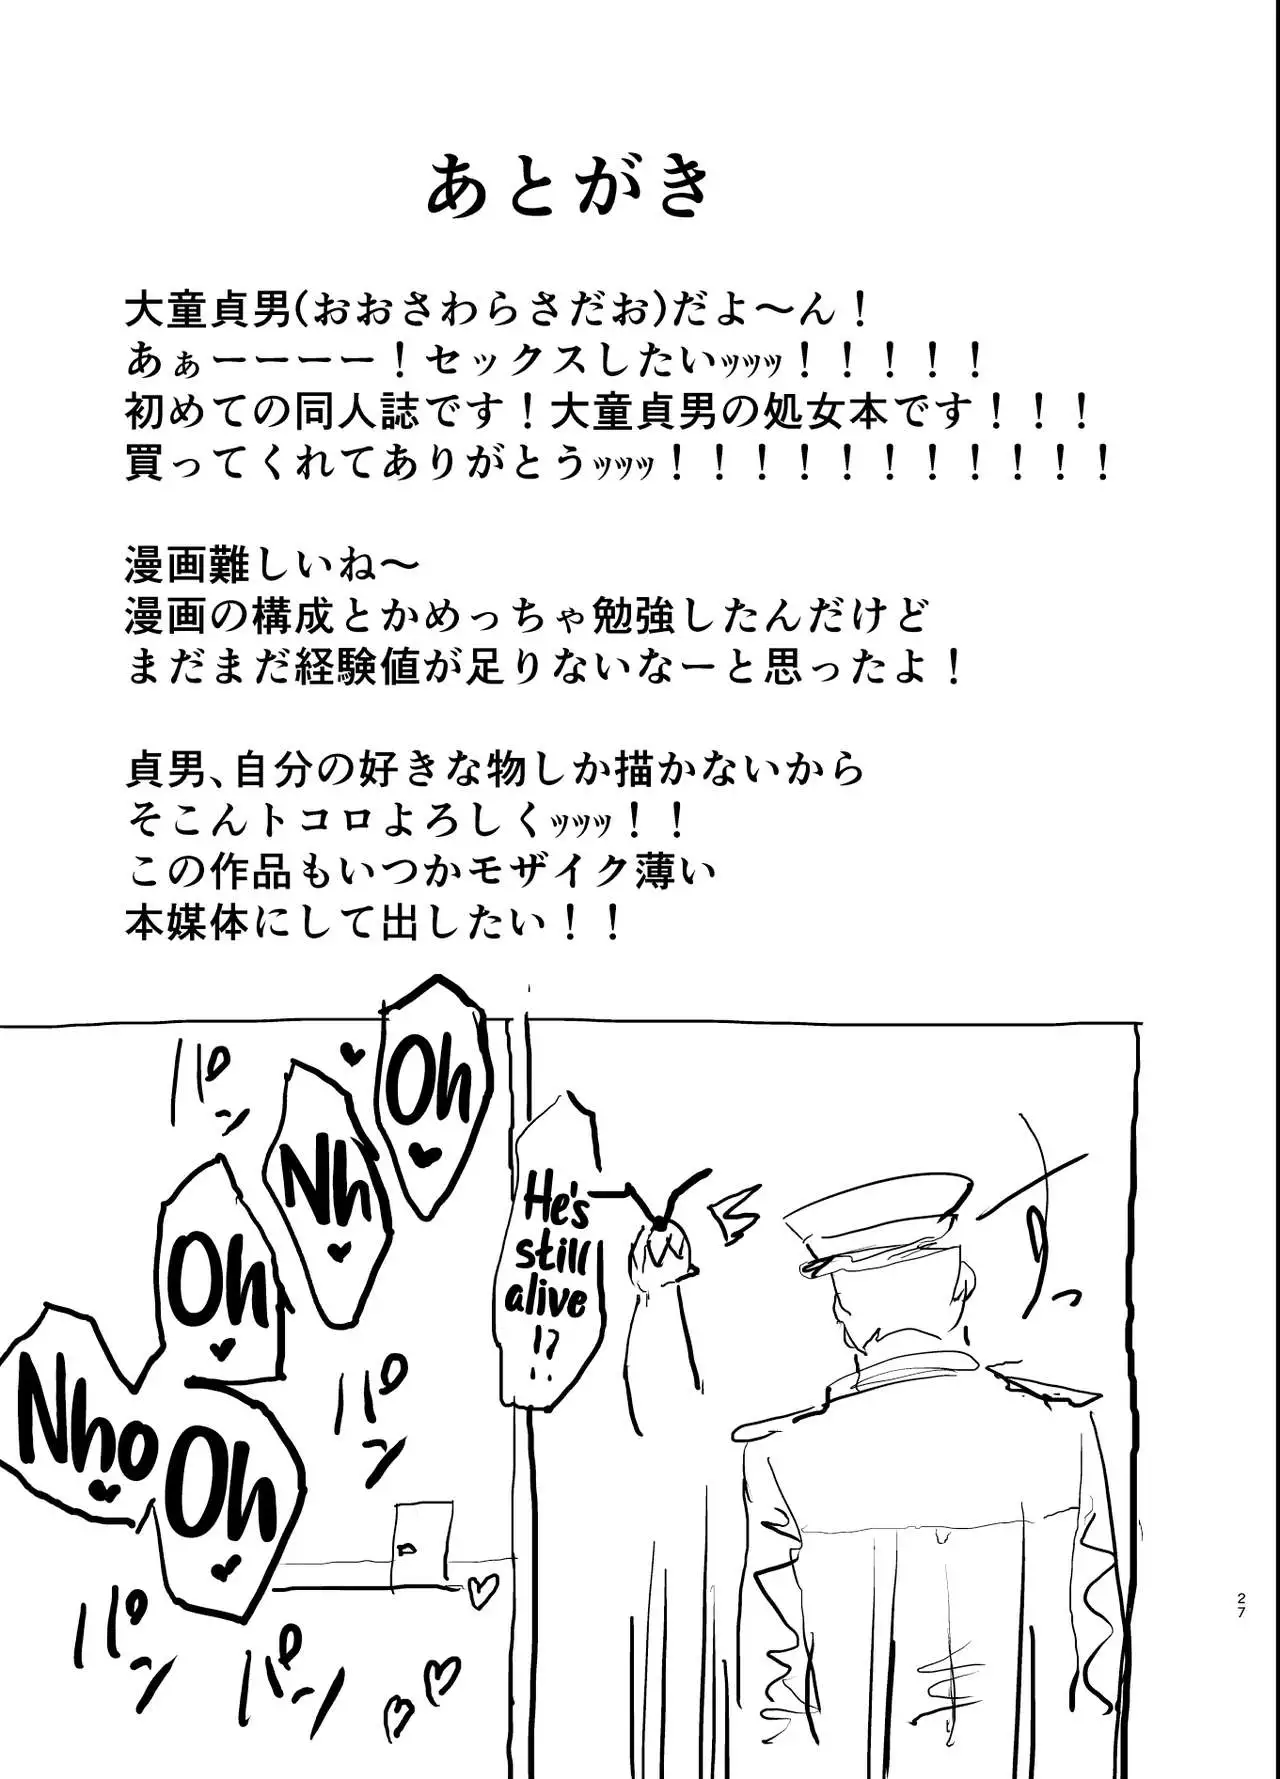 あとがき
大童貞男(おおさわらさだお)だよ〜ん！
あぁーーーー！セックスしたいｯｯｯ！！！！！
初めての同人誌です！大童貞男の処女本です！！！
買ってくれてありがとうｯｯｯ！！！！！！！！！！！
漫画難しいね〜
漫画の構成とかめっちゃ勉強したんだけど
まだまだ経験値が足りないなーと思ったよ！
貞男、自分の好きな物しか描かないから
そこんトコロよろしくｯｯｯ！！
この作品もいつかモザイク薄い
本媒体にして出したい！！
Oh♥
Nh♥
パン
Oh♥
Nho♥
Oh♥
He's
still
alive
!?
パン
パン
パン
27